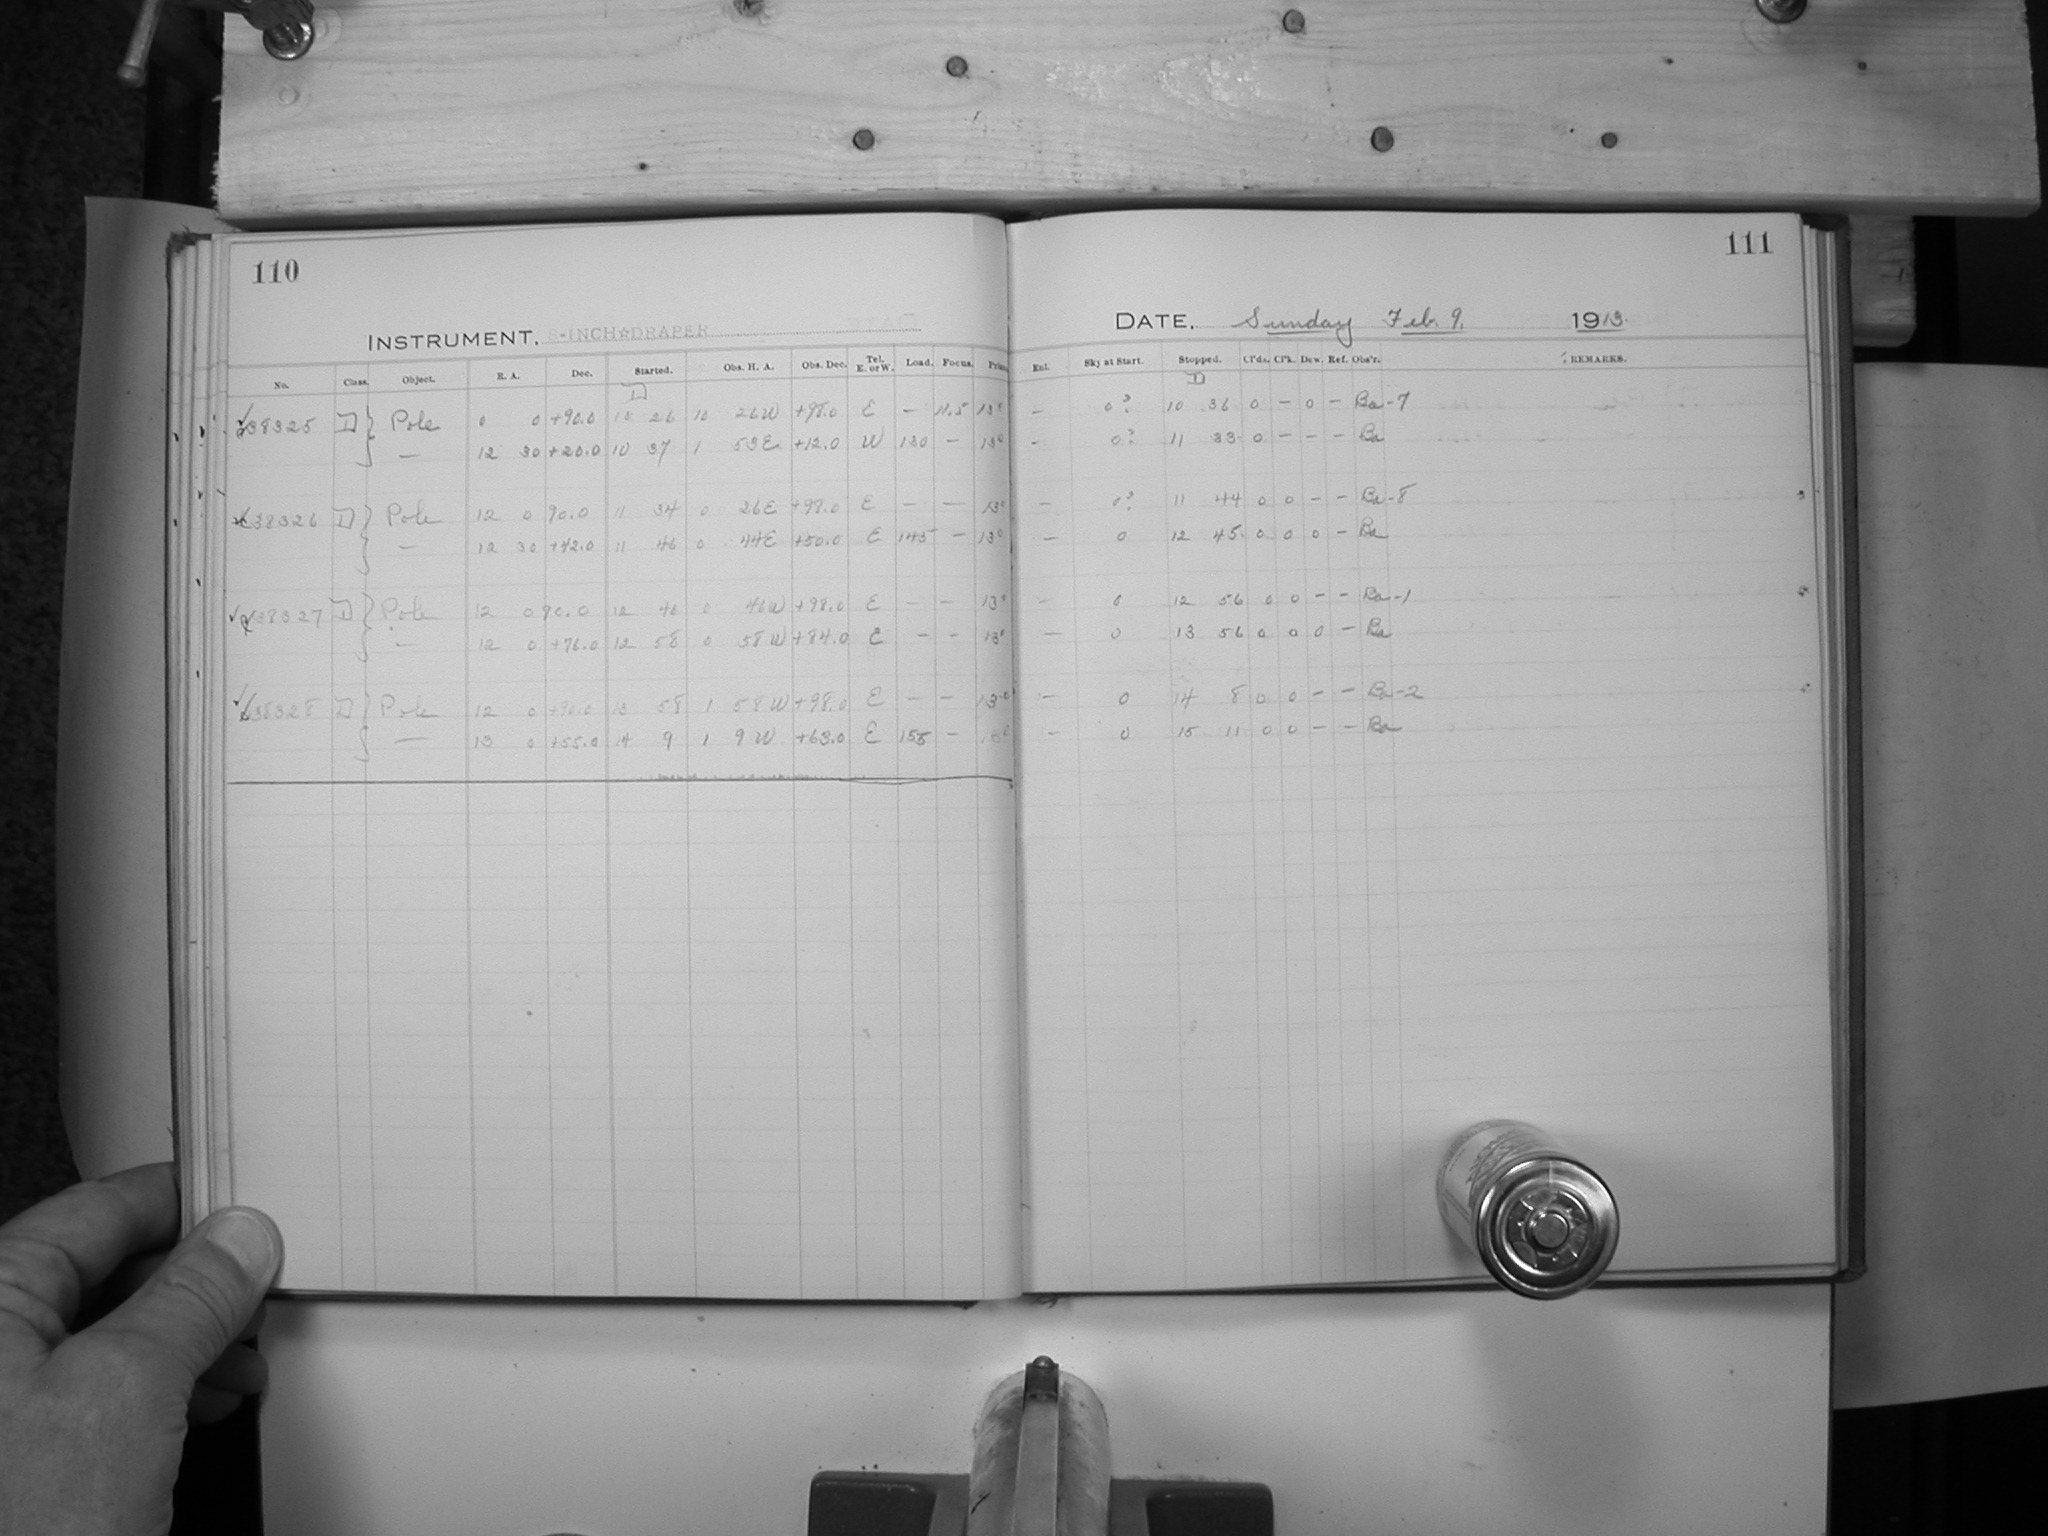 110
INSTRUMENT, 8-INCH☆DRAPER
No. Class. Object. R. A. Dec. Started. Obs. H. A. Obs. Dec. Tel. E. or W. Load. Focus. Prism
D
38325 D Pole 0 0 +90.0 10 26 10 26W +98.0 E – 11.5 13°
— 12 30 +20.0 10 37 1 53E +12.0 W 130 – 13°
38326 D Pole 12 0 90.0 11 34 0 26E +98.0 E – – 13°
— 12 30 +42.0 11 46 0 44E +50.0 E 145 – 13°
38327 D Pole 12 0 90.0 12 46 0 46W +98.0 E – – 13°
— 12 0 +76.0 12 58 0 58W +84.0 E – – 13°
38328 D Pole 12 0 +90.0 13 58 1 58W +98.0 E – – 13°
— 13 0 +55.0 14 9 1 9W +63.0 E 155 –
111
DATE, Sunday Feb. 9, 1913.
Enl. Sky at Start. Stopped. Cl'ds. Cl'k. Dew. Ref. Obs'r. REMARKS.
D
– 0? 10 36 0 – 0 – Ba-7
– 0? 11 33 0 – – – Ba
– 0? 11 44 0 0 – – Ba-8
– 0 12 45 0 0 0 – Ba
– 0 12 56 0 0 – – Ba-1
– 0 13 56 0 0 0 – Ba
– 0 14 8 0 0 – – Ba-2
– 0 15 11 0 0 – – Ba